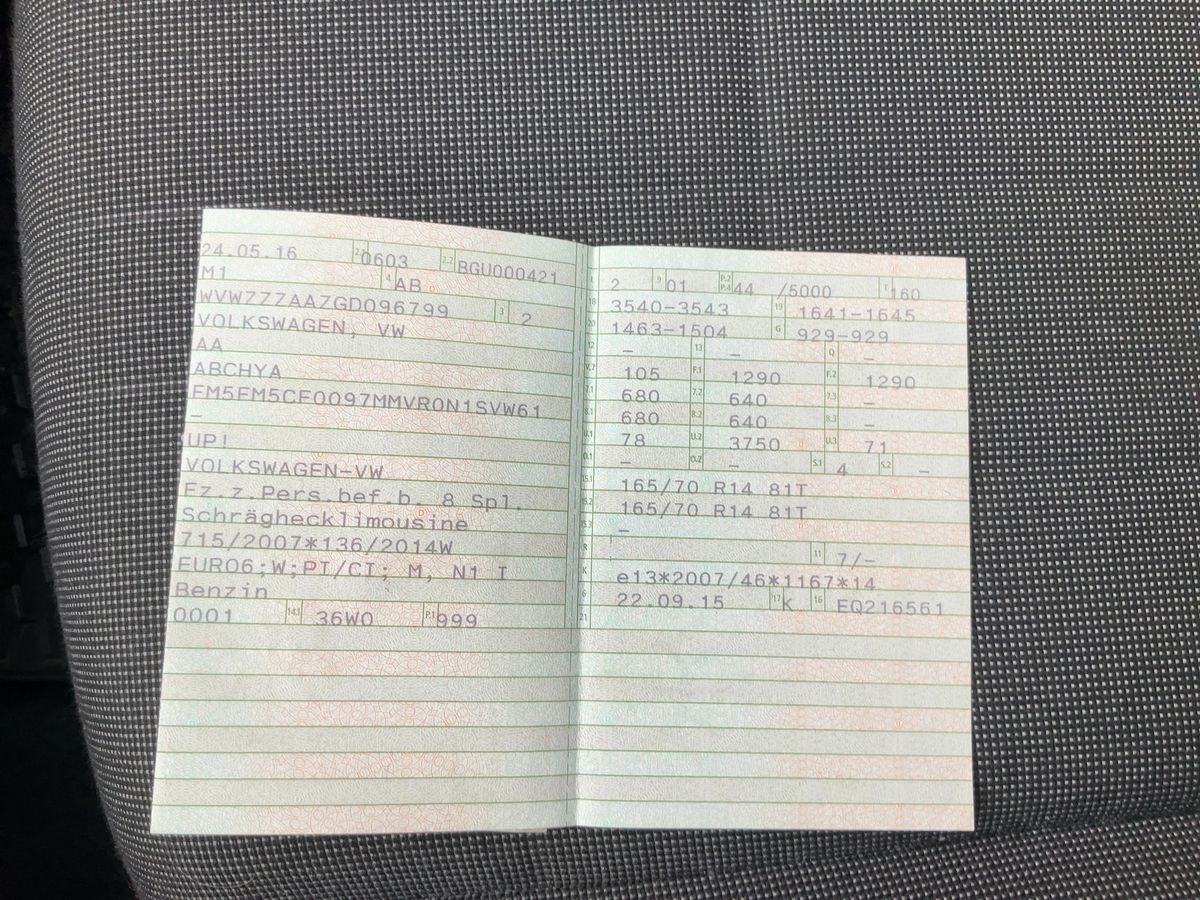 24.05.16 2.1 0603 2.2 BGU000421
M1 4 AB
WVWZZZAAZGD096799 3 2
VOLKSWAGEN, VW
AA
ABCHYA
FM5FM5CF0097MMVR0N1SVW61
–
UP!
VOLKSWAGEN-VW
Fz.z.Pers.bef.b. 8 Spl.
Schräghecklimousine
715/2007*136/2014W
EURO6;W;PI/CI; M, N1 I
Benzin
0001 14.1 36W0 P.1 999
L 2 9 01 P.2 P.4 44 /5000 T 160
18 3540-3543 19 1641-1645
20 1463-1504 G 929-929
12 – 13 – Q –
V.7 105 F.1 1290 F.2 1290
7.1 680 7.2 640 7.3 –
8.1 680 8.2 640 8.3 –
U.1 78 U.2 3750 U.3 71
O.1 – O.2 – S.1 4 S.2 –
15.1 165/70 R14 81T
15.2 165/70 R14 81T
15.3 –
R 11 7/–
K e13*2007/46*1167*14
6 22.09.15 17 K 16 EQ216561
21